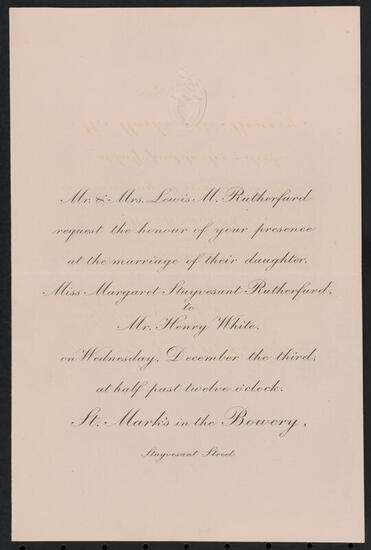 Mr. & Mrs. Lewis M. Rutherfurd
request the honour of your presence
at the marriage of their daughter,
Miss Margaret Stuyvesant Rutherfurd,
to
Mr. Henry White,
on Wednesday, December the third,
at half past twelve o'clock.
St. Mark's in the Bowery,
Stuyvesant Street.